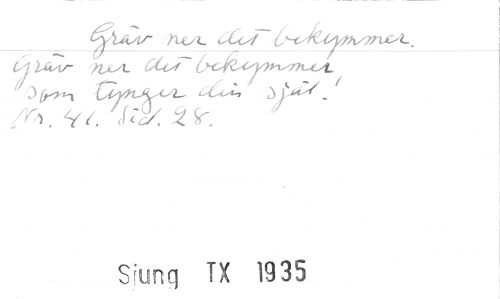 Gräv ner det bekymmer.
Gräv ner det bekymmer
som tynger din själ!
Nr. 41. Sid. 28.
Sjung TX 1935